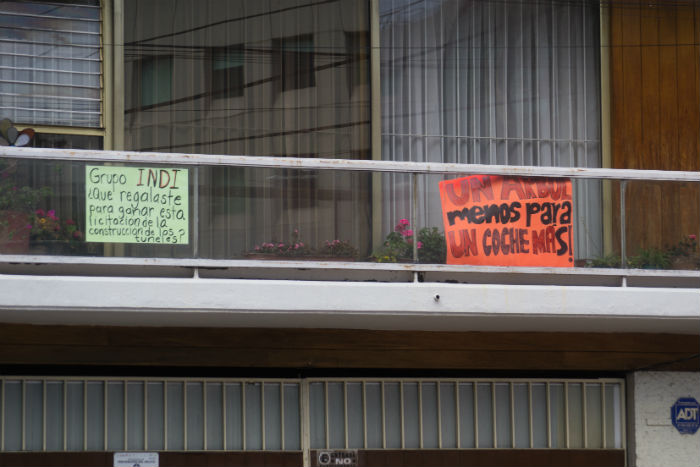 Grupo INDI
¿Qué regalaste
para ganar esta
licitación de la
construcción de los
túneles?
UN ARBOL
menos para
UN COCHE MÁS!
ADT
NO